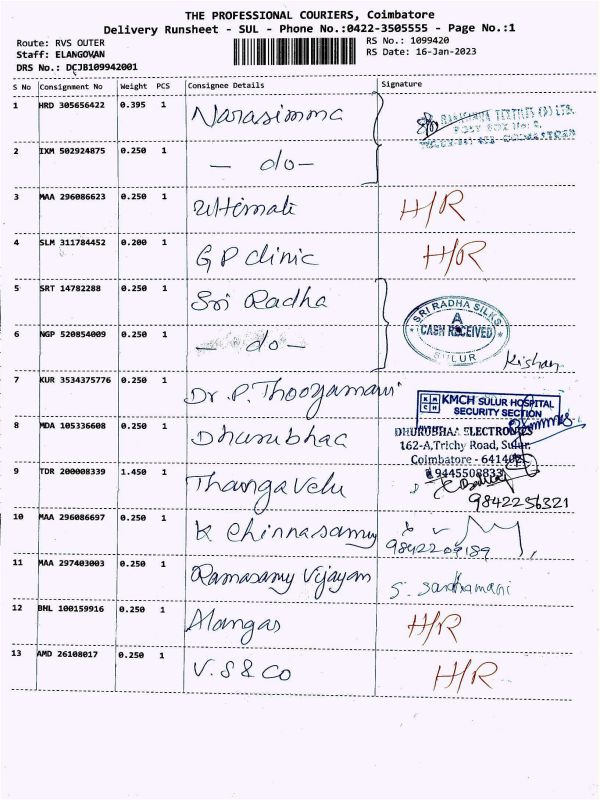 THE PROFESSIONAL COURIERS, Coimbatore
Delivery Runsheet - SUL - Phone No.:0422-3505555 - Page No.:1
Route: RVS OUTER
Staff: ELANGOVAN
DRS No.: DCJB109942001
RS No.: 1099420
RS Date: 16-Jan-2023
S No Consignment No Weight PCS Consignee Details Signature
1 HRD 305656422 0.395 1 Narasimma
2 IXM 502924875 0.250 1 - do -
3 MAA 296086623 0.250 1 Ultimate H/R
4 SLM 311784452 0.200 1 G P clinic H/R
5 SRT 14782288 0.250 1 Sri Radha
SRI RADHA SILKS
A
CASH RECEIVED
SULUR
6 NGP 520854009 0.250 1 - do - Kishan
7 KUR 3534375776 0.250 1 Dr. P. Thooyamani
KMCH SULUR HOSPITAL
SECURITY SECTION
8 MDA 105336608 0.250 1 Dhurubhaa
DHURUBHAA ELECTRONICS
162-A, Trichy Road, Sulur,
Coimbatore - 641402
9445508833
9 TDR 200008339 1.450 1 Thangavelu 9842256321
10 MAA 296086697 0.250 1 K Chinnasamy
11 MAA 297403003 0.250 1 Ramasamy Vijayam S. Santhamani
12 BHL 100159916 0.250 1 H/R
13 AMD 26108017 0.250 1 V. S & Co H/R